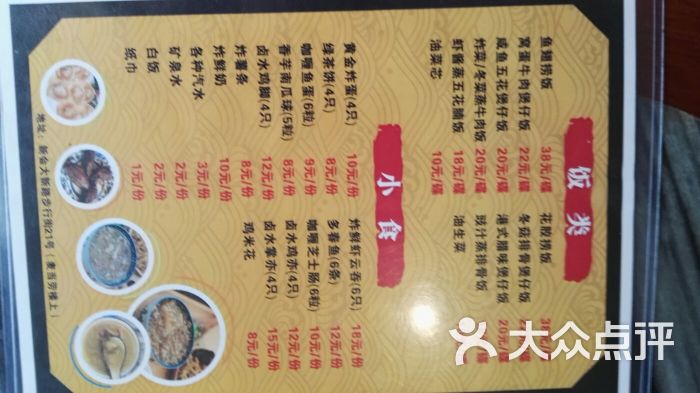 饭类
鱼翅捞饭 38元/碟 花胶捞饭
窝蛋牛肉煲仔饭 22元/碟 冬菇排骨煲仔饭
咸鱼五花煲仔饭 20元/碟 港式腊味煲仔饭 20元/碟
炸菜/冬菜蒸牛肉饭 20元/碟 豉汁蒸排骨饭
虾酱蒸五花腩饭 18元/碟 油生菜
油菜芯 10元/碟
小食
黄金炸蛋(4只) 10元/份 炸鲜虾云吞(6只) 18元/份
绿茶饼(4只) 8元/份 多春鱼(6条) 12元/份
咖喱鱼蛋(6粒) 9元/份 咖喱芝士肠(6粒) 10元/份
香芋南瓜球(5粒) 8元/份 卤水鸡亦(4只) 12元/份
卤水鸡脚(4只) 12元/份 卤水掌亦(4只) 15元/份
炸薯条 8元/份 鸡米花 8元/份
炸鲜奶 10元/份
各种汽水 3元/份
矿泉水 2元/份
白饭 2元/份
纸巾 1元/份
地址：新会大新路步行街21号（麦当劳楼上）
大众点评